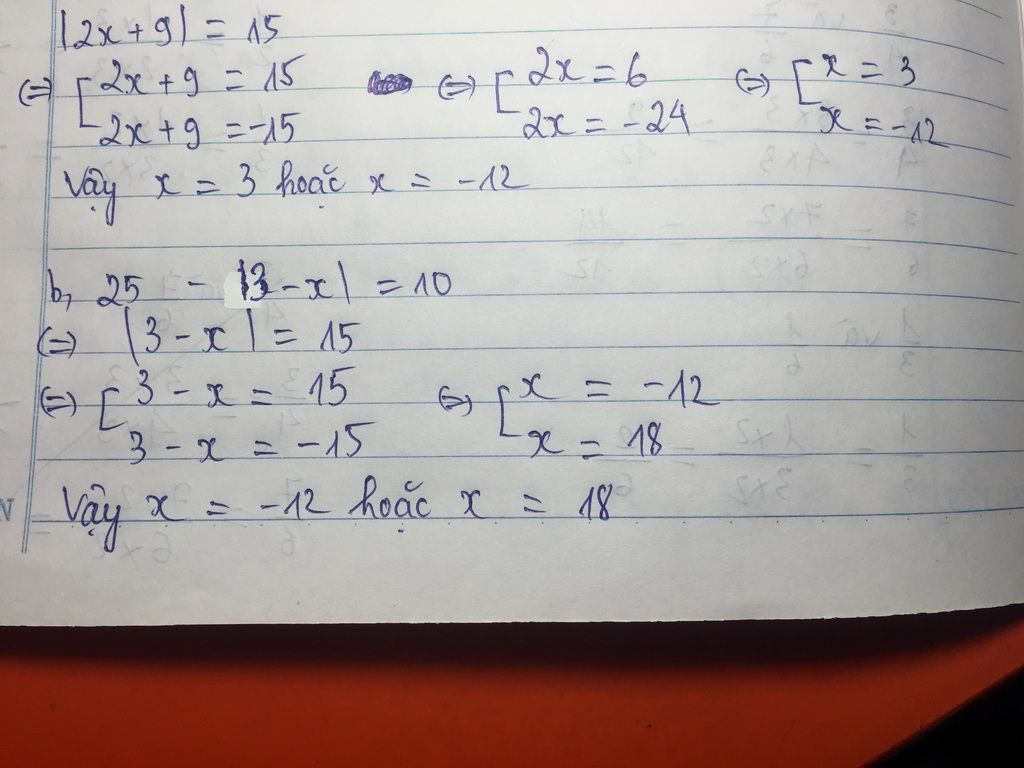 |2x + 9| = 15
⇔ [ 2x + 9 = 15 ⇔ [ 2x = 6 ⇔ [ x = 3
2x + 9 = -15 2x = -24 x = -12
Vậy x = 3 hoặc x = -12
b, 25 - |3 - x| = 10
⇔ |3 - x| = 15
⇔ [ 3 - x = 15 ⇔ [ x = -12
3 - x = -15 x = 18
Vậy x = -12 hoặc x = 18